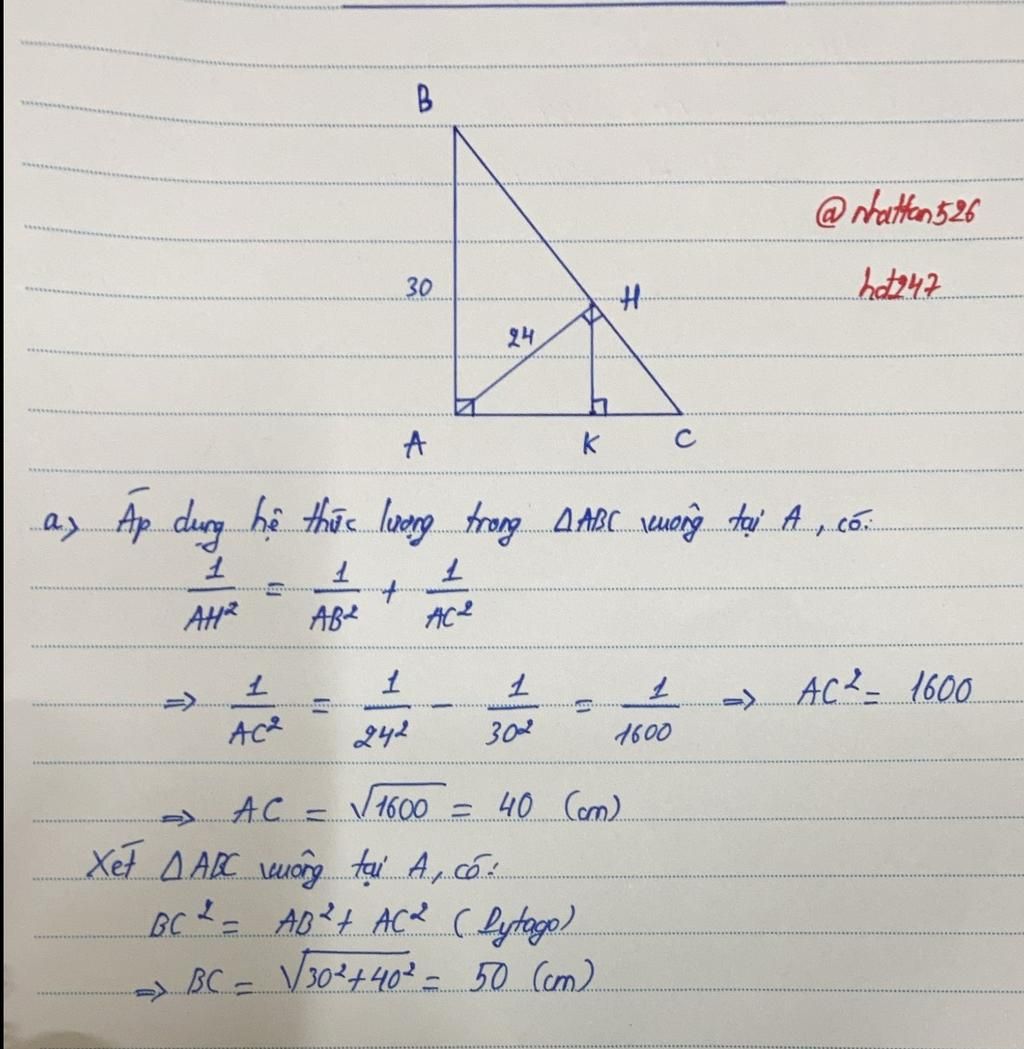 B
@nhattan526
hdt247
30
H
24
A
K
C
a> Áp dụng hệ thức lượng trong ΔABC vuông tại A, có:
1/AH² = 1/AB² + 1/AC²
⇒ 1/AC² = 1/24² - 1/30² = 1/1600 ⇒ AC² = 1600
⇒ AC = √1600 = 40 (cm)
Xét ΔABC vuông tại A, có:
BC² = AB² + AC² (Pytago)
⇒ BC = √30²+40² = 50 (cm)